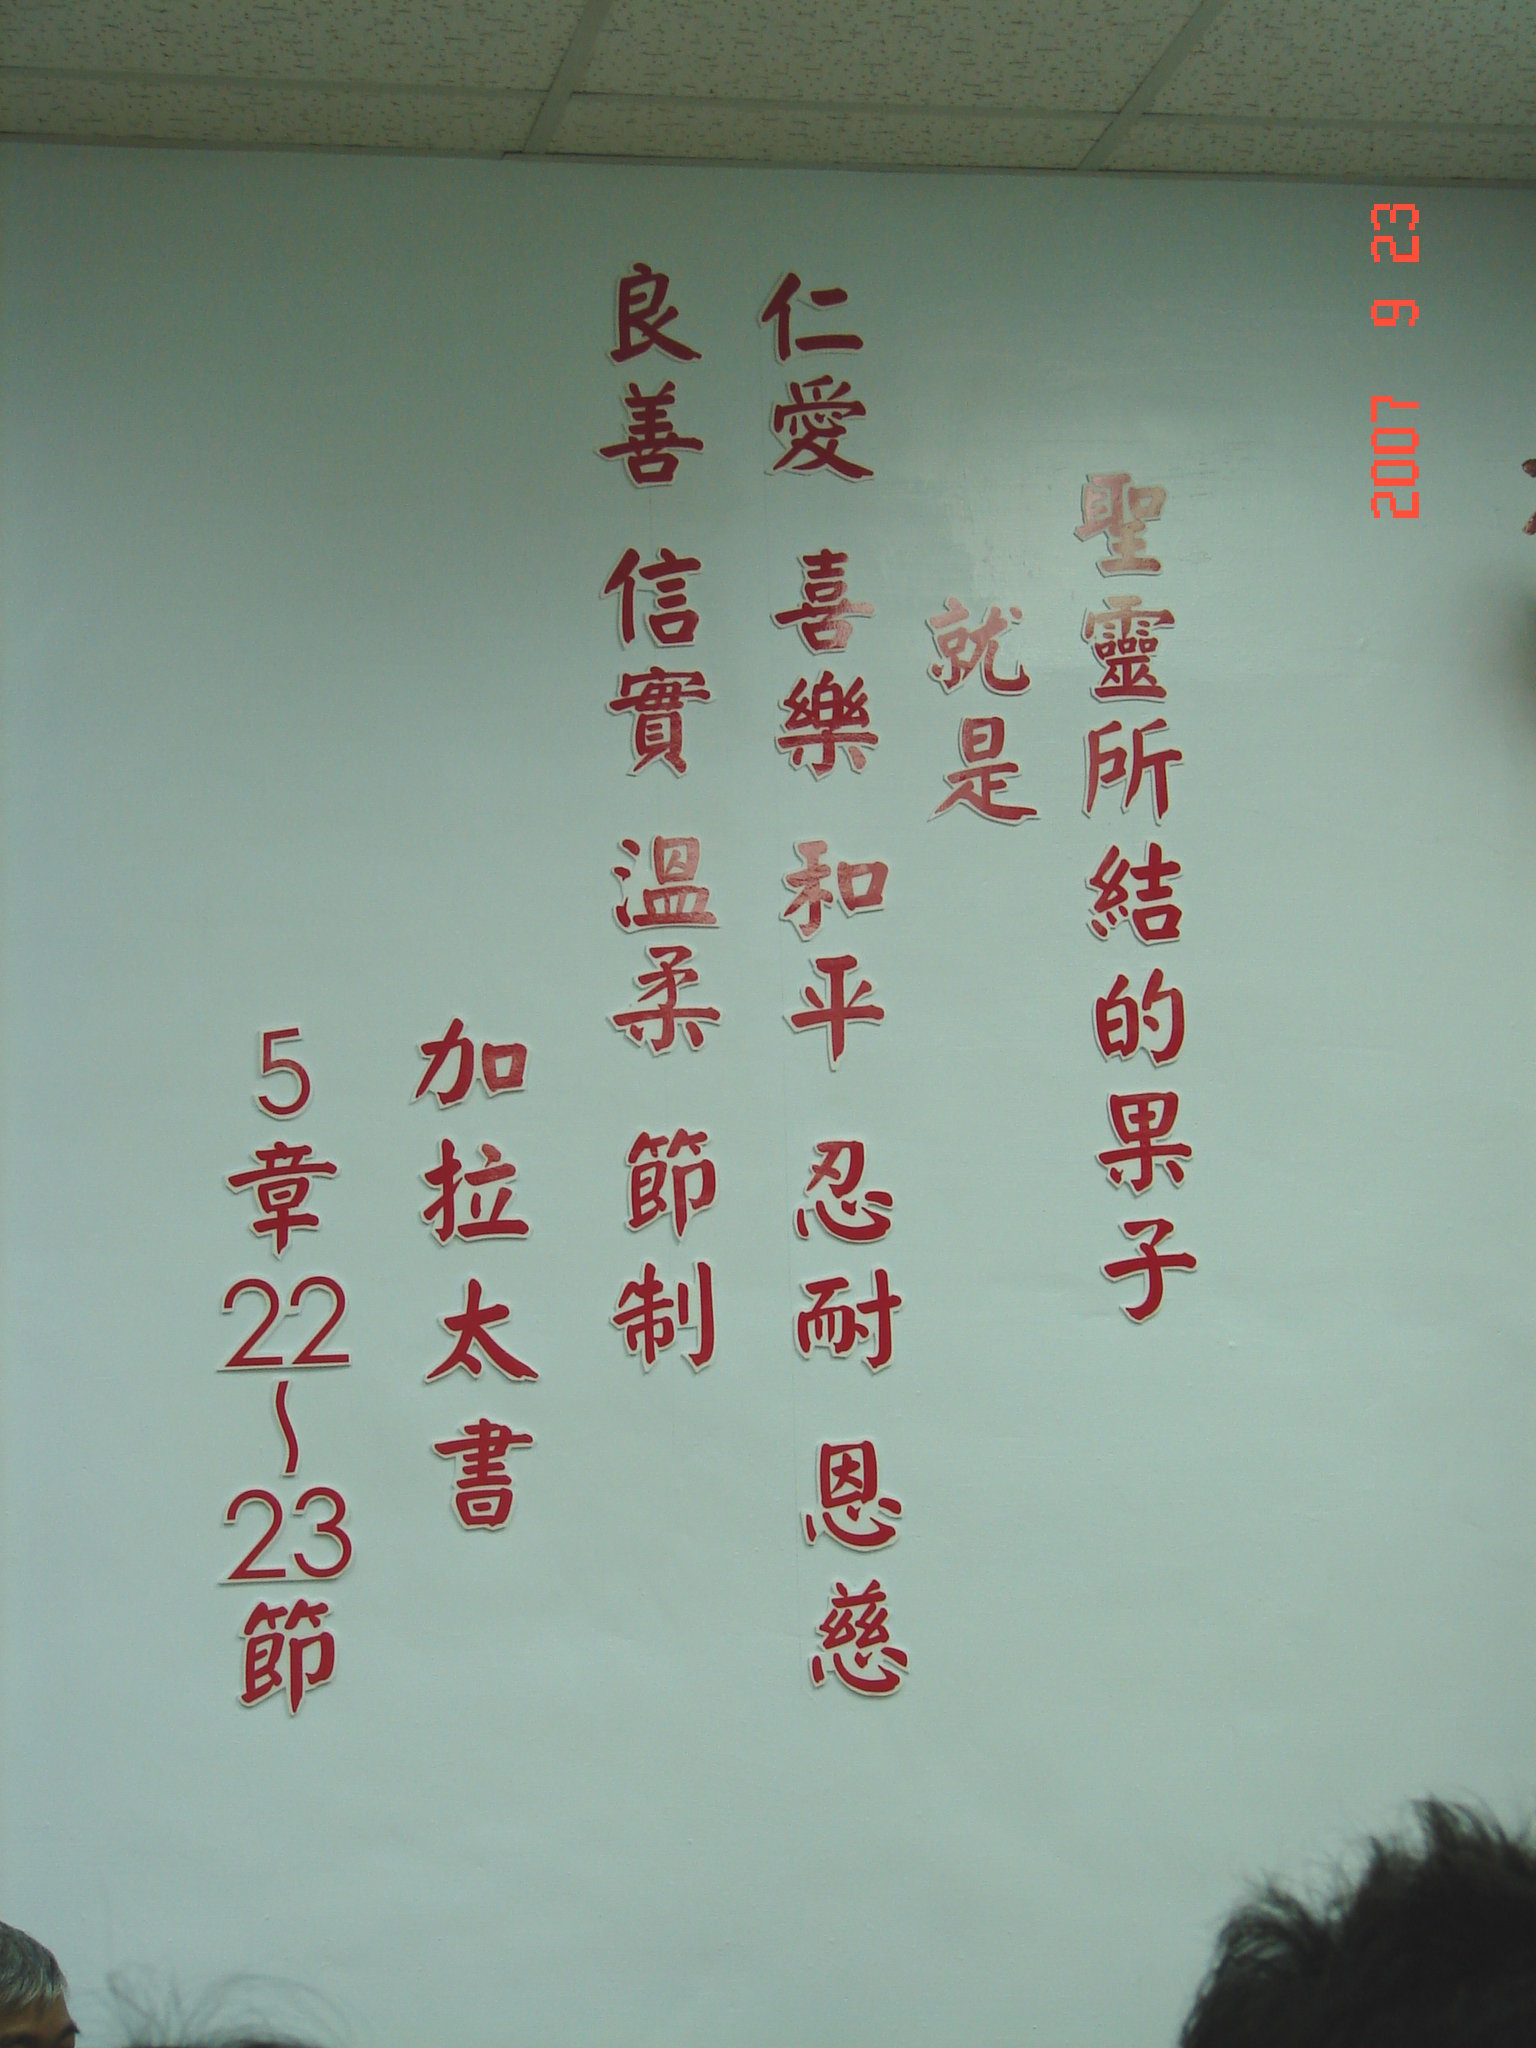 聖靈所結的果子
就是
仁愛 喜樂 和平 忍耐 恩慈
良善 信實 溫柔 節制
加拉太書
5章22～23節
2007 9 23